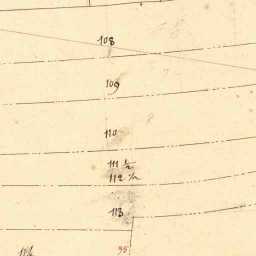 108
109
110
111 ½
112 ½
113
95